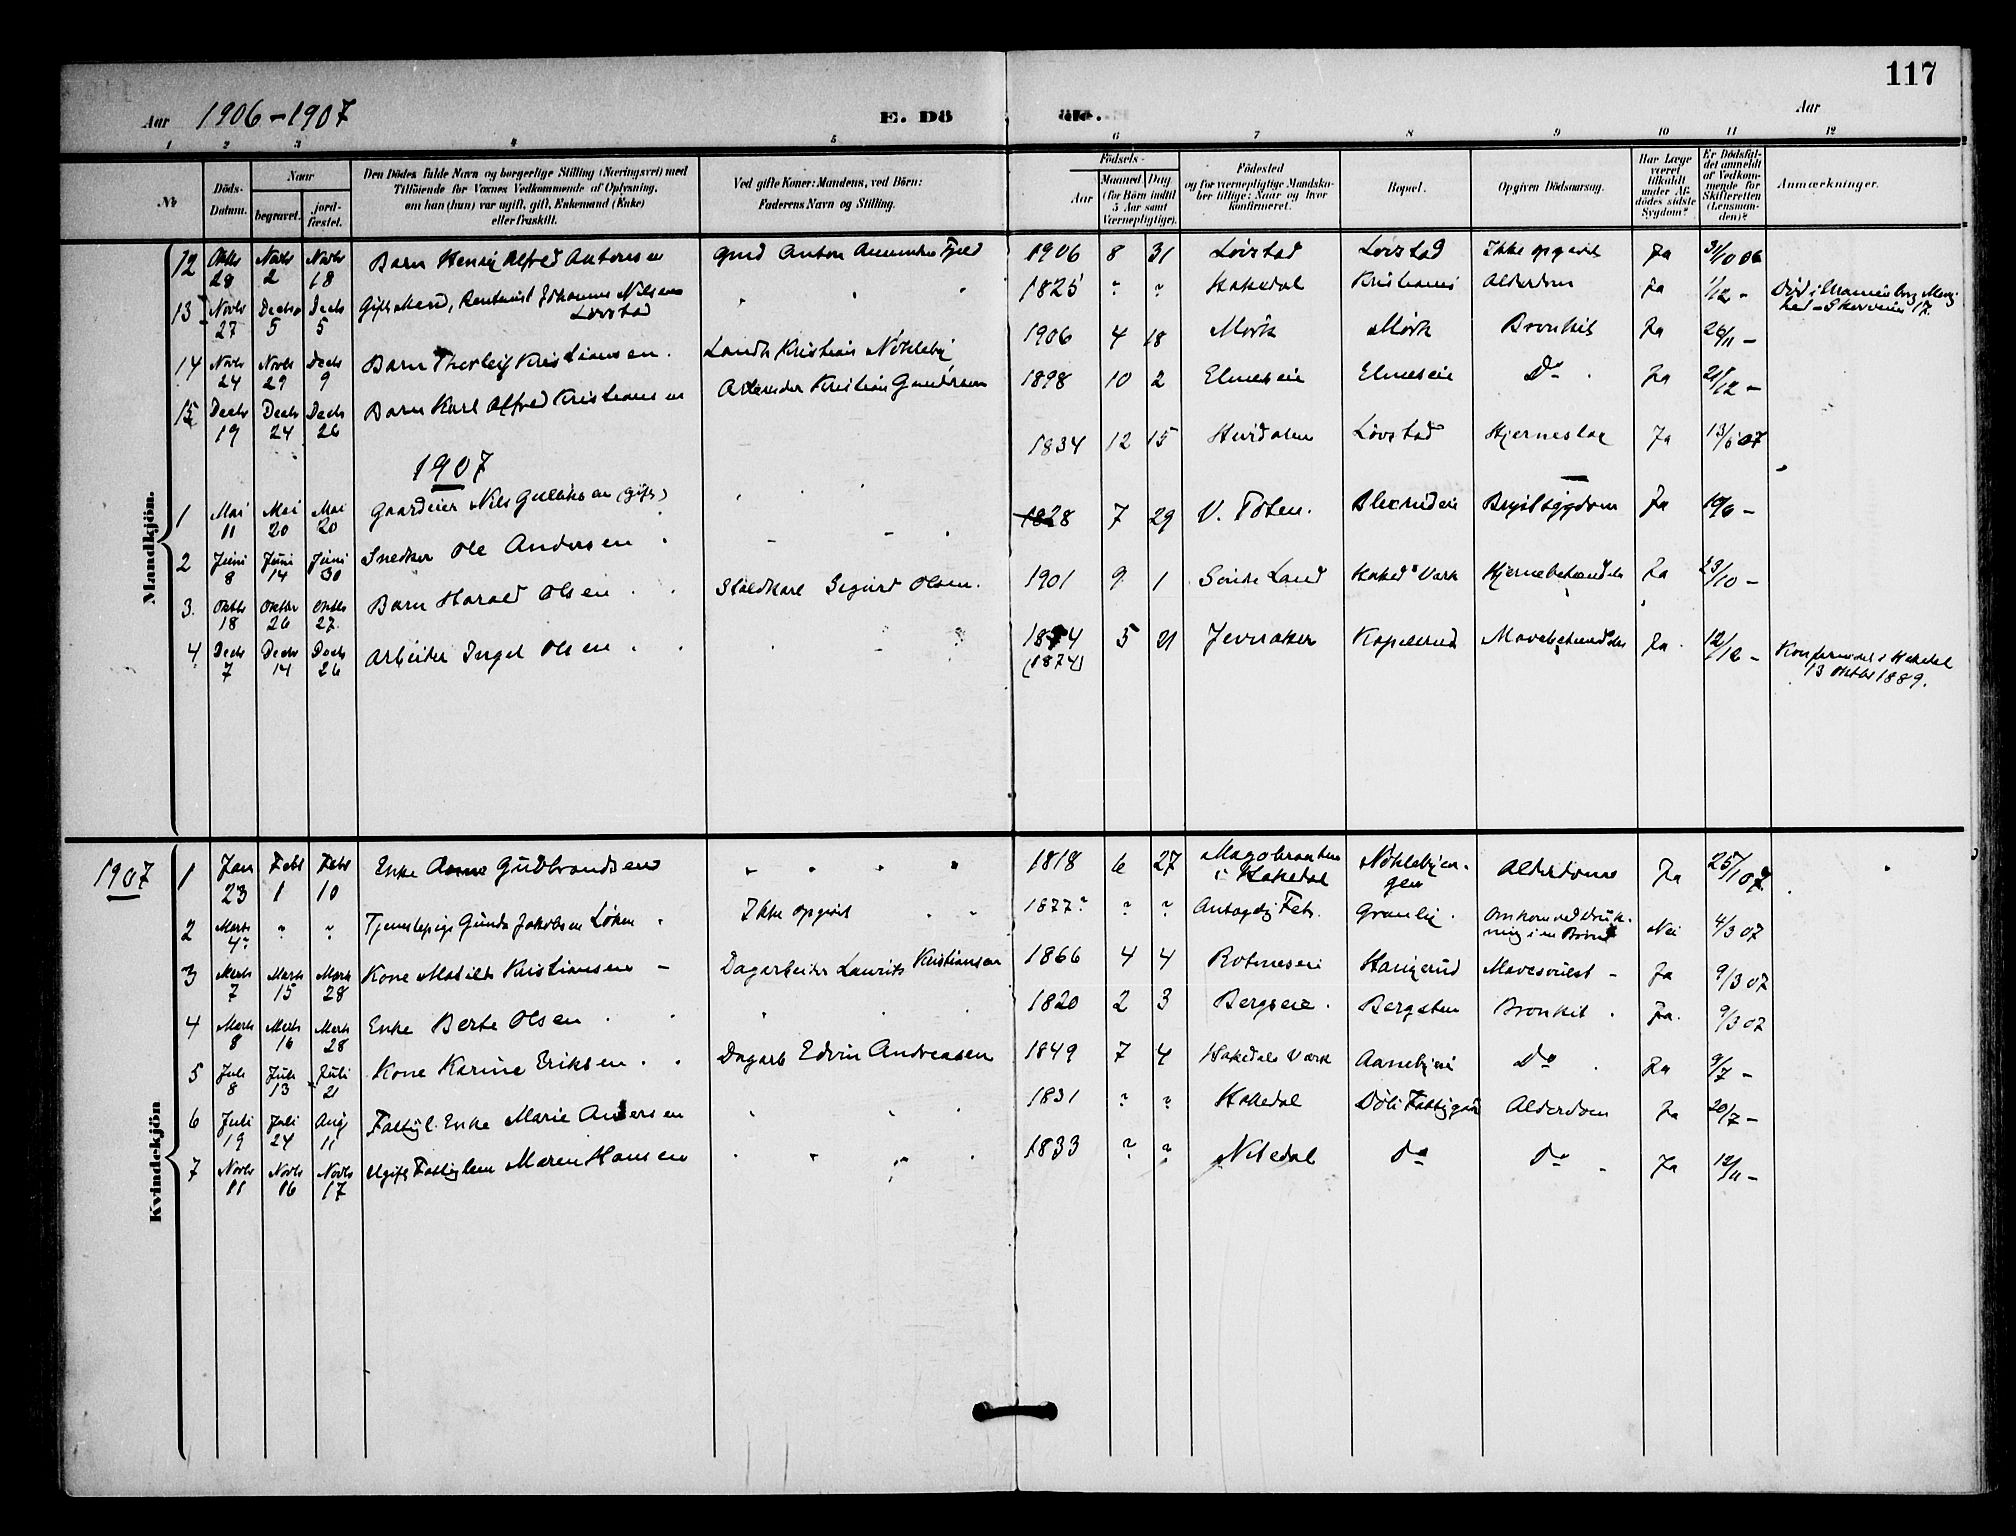 117
Aar 1906-1907 E. Dö de. Aar
1 2 3 4 5 6 7 8 9 10 11 12
No
Döds-Datum.
Naar
begravet.
jordfæstet.
Den Dödes fulde Navn og borgerlige Stilling (Næringsvei) med
Tilföiende for Voxnes Vedkommende af Oplysning,
om han (hun) var ugift, gift, Enkemand (Enke)
eller fraskilt.
Ved gifte Koner: Mandens, ved Börn:
Faderens Navn og Stilling.
Födsels-
Aar
Maaned Dag
(for Börn indtil
5 Aar samt
Værnepligtige).
Födested
og for værnepligtige Mandskaber tillige: Naar og hvor
konfirmeret.
Bopæl.
Opgiven Dödsaarsag.
Har Læge
været
tilkaldt
under Afdödes sidste
Sygdom?
Er Dödsfaldet anmeldt
af Vedkommende for
Skifteretten
(Lensmanden)?
Anmærkninger.
Mandkjön.
12 Oktb 28 Novb 2 Novb 18 Barn Henry Alfred Antonsen Anton Fjeld 1906 8 31 Lövstad Lövstad Ikke opgivet Ja 31/10 06
13 Novb 27 Decb 5 Decb 5 Gift Mand, Rentenist Johannes Nilsen Lövstad 1825 " " Hakedal Kristiania Alderdom Ja 1/12 - Död i 17.
14 Novb 24 Novb 29 Decb 9 Barn Thorleif Kristiansen. Landh. Kristian Nökleby 1906 4 18 Mörk Mörk Bronkit Ja 26/11 -
15 Decb 19 Decb 24 Decb 26 Barn Karl Alfred Kristiansen Arbeider Kristian Gundersen 1898 10 2 Elneseie Elneseie Do. Ja 21/12 -
1907
1 Mai 11 Mai 20 Mai 20 Gaardeier Nils Gulliksen (gift) 1834 12 15 Lövstad Hjerneslag Ja 13/5 07
2 Juni 8 Juni 14 Juni 30 Snedker Ole Andersen 1828 7 29 V. Toten. Brystsygdom Ja 10/6 -
3. Oktb 18 Oktbr 26 Oktb 27. Barn Harald Olsen Staldkarl Sigurd Olsen. 1901 9 1 Söndre Land Haked. Værk Hjernebetændelse Ja 23/10 -
4 Decb 7 Decb 14 Decb 26 Arbeider Ingel Olsen 1874 (1874) 5 21 Jevnaker Kapelrud Mavebetændelse Ja. 12/12 - Konfirmeret i Hakedal 13 Oktbr 1889.
1907
Kvindekjön
1 Jan 23 Febr 1 Febr 10 Enke Anne Gudbrandsen 1818 6 27 Magobraaten i Hakedal Nöklebyengen Alderdom Ja 25/1 07.
2 Marts 4? " " Tjenestepige Gunda Jakobsen Löken Ikke opgivet 1877? ? ? Antagelig Fet. Granli. Omkom ved drukning i en Brönd Nei 4/3 07
3 Marts 7 Marts 15 Marts 28 Kone Matilde Kristiansen - Dagarbeider Laurits Kristiansen 1866 4 4 Rotneseie Haugerud Ja 9/3 07
4 Marts 8 Marts 16 Marts 28 Enke Berte Olsen 1820 2 3 Bergseie. Bergsten Bronkit Ja. 9/3 07
5 Juli 8 Juli 13 Juli 21 Kone Karine Eriksen. Dagarb Edvin Andreasen 1849 7 4 Hakedals Værk Aanebyeie Do Ja 9/7 -
6 Juli 19 Juli 24 Aug 11 Fattigl. Enke Marie Andersen 1831 ? ? Hakedal Döli Fattiggaard Alderdom Ja 20/7 -
7 Novb 11 Novb 16 Novb 17 Ugift Fattiglem Maren Hansen 1833 ? ? Nitedal do do Ja 12/11 -